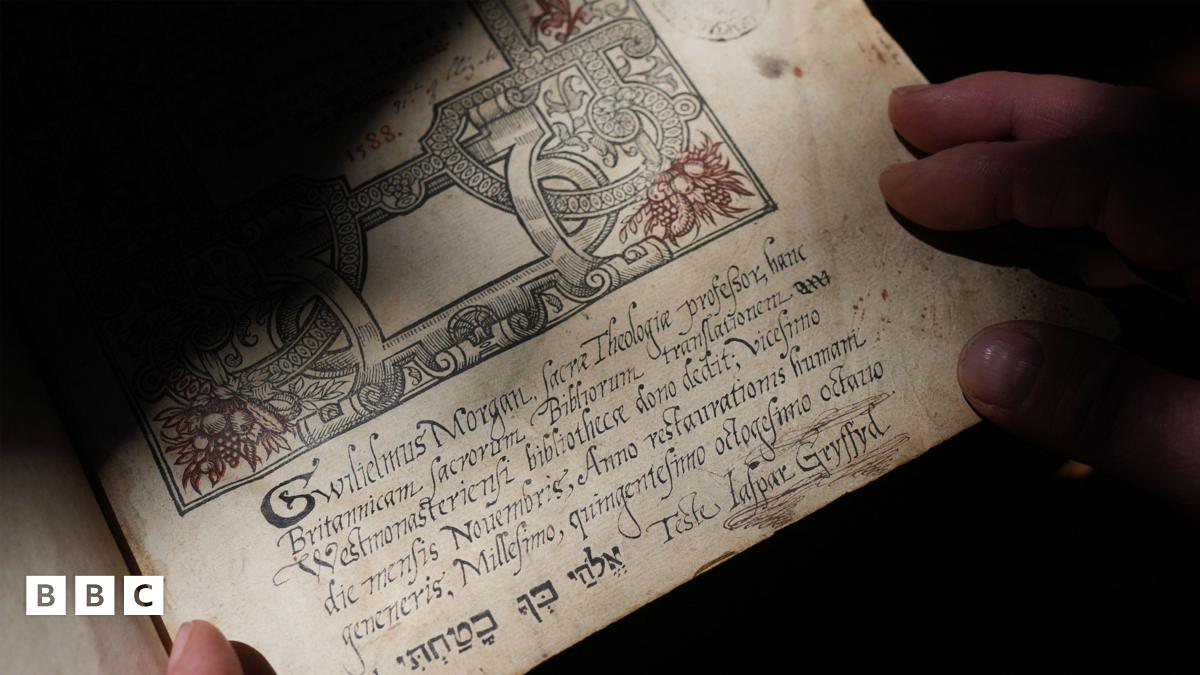 1588.
Gwilielmus Morgan, sacræ Theologiæ professor, hanc
Britannicam sacrorum Bibliorum translationem
Westmonasteriensi bibliothecæ dono dedit; vicesimo
die mensis Nouembris, Anno restaurationis humani
generis, Millesimo, quingentesimo octogesimo octauo
Teste Iaspar Gryffyd
אֱלֹהַי בְּךָ בָטַחְתִּי
BBC